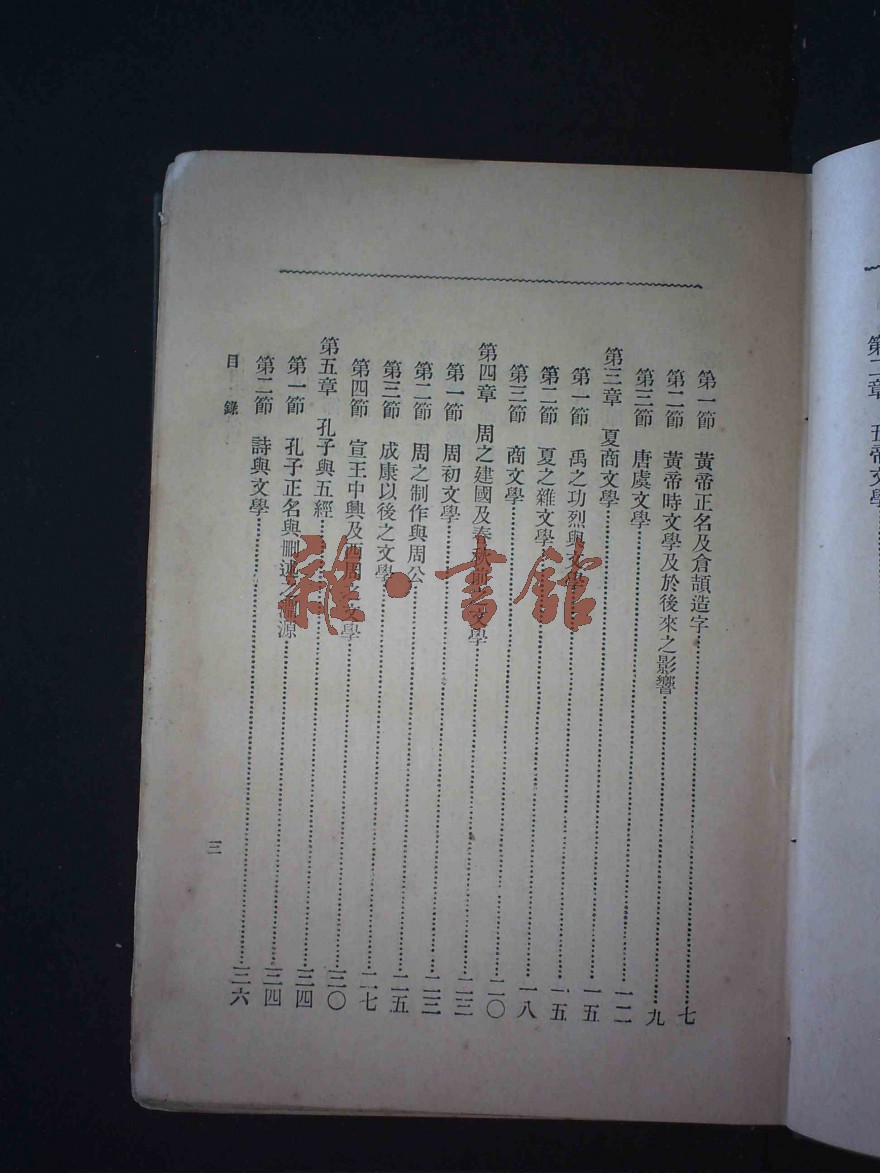 第二章 五帝文學
第一節 黃帝正名及倉頡造字……七
第二節 黃帝時文學及於後來之影響……九
第三節 唐虞文學……一二
第三章 夏商文學……一五
第一節 禹之功烈與文學……一五
第二節 夏之雜文學……一八
第三節 商文學……二〇
第四章 周之建國及春秋前之文學……二三
第一節 周初文學……二三
第二節 周之制作與周公……二五
第三節 成康以後之文學……二七
第四節 宣王中興及西周之文學……三〇
第五章 孔子與五經……三四
第一節 孔子正名與刪述之淵源……三四
第二節 詩與文學……三六
目錄
三
雜·書館